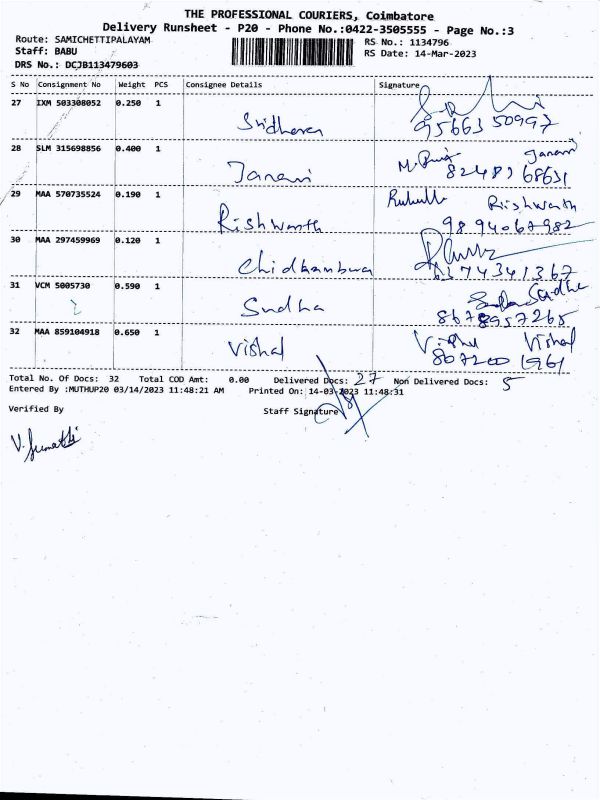 THE PROFESSIONAL COURIERS, Coimbatore
Delivery Runsheet - P20 - Phone No.:0422-3505555 - Page No.:3
Route: SAMICHETTIPALAYAM
RS No.: 1134796
Staff: BABU
RS Date: 14-Mar-2023
DRS No.: DCJB113479603
S No Consignment No Weight PCS Consignee Details Signature
27 IXM 503308052 0.250 1
Sridharan 95663 50997
28 SLM 315698856 0.400 1
Janani 82489 68631 Janani
29 MAA 570735524 0.190 1
Rishwanth Rishwanth 9894067982
30 MAA 297459969 0.120 1
6374341367
31 VCM 5005730 0.590 1
Sudha Sudha 8678957265
32 MAA 859104918 0.650 1
Vishal Vishal 807200 1961
Total No. Of Docs: 32 Total COD Amt: 0.00 Delivered Docs: 27 Non Delivered Docs: 5
Entered By :MUTHUP20 03/14/2023 11:48:21 AM Printed On: 14-03-2023 11:48:31
Verified By Staff Signature